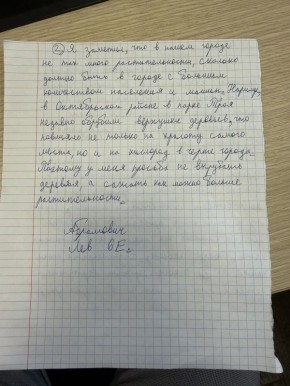 ② Я заметил, что в нашем городе
не так много растительности, сколько
должно быть в городе с большим
количеством населения и машин. Например,
в Октябрьском районе в парке
недавно обрубили верхушки деревьев, что
повлияло не только на красоту самого
места, но и на кислород в черте города.
Поэтому у меня просьба не вырубать
деревья, а сажать как можно больше
растительности.
Абрамович
Лев 6Е